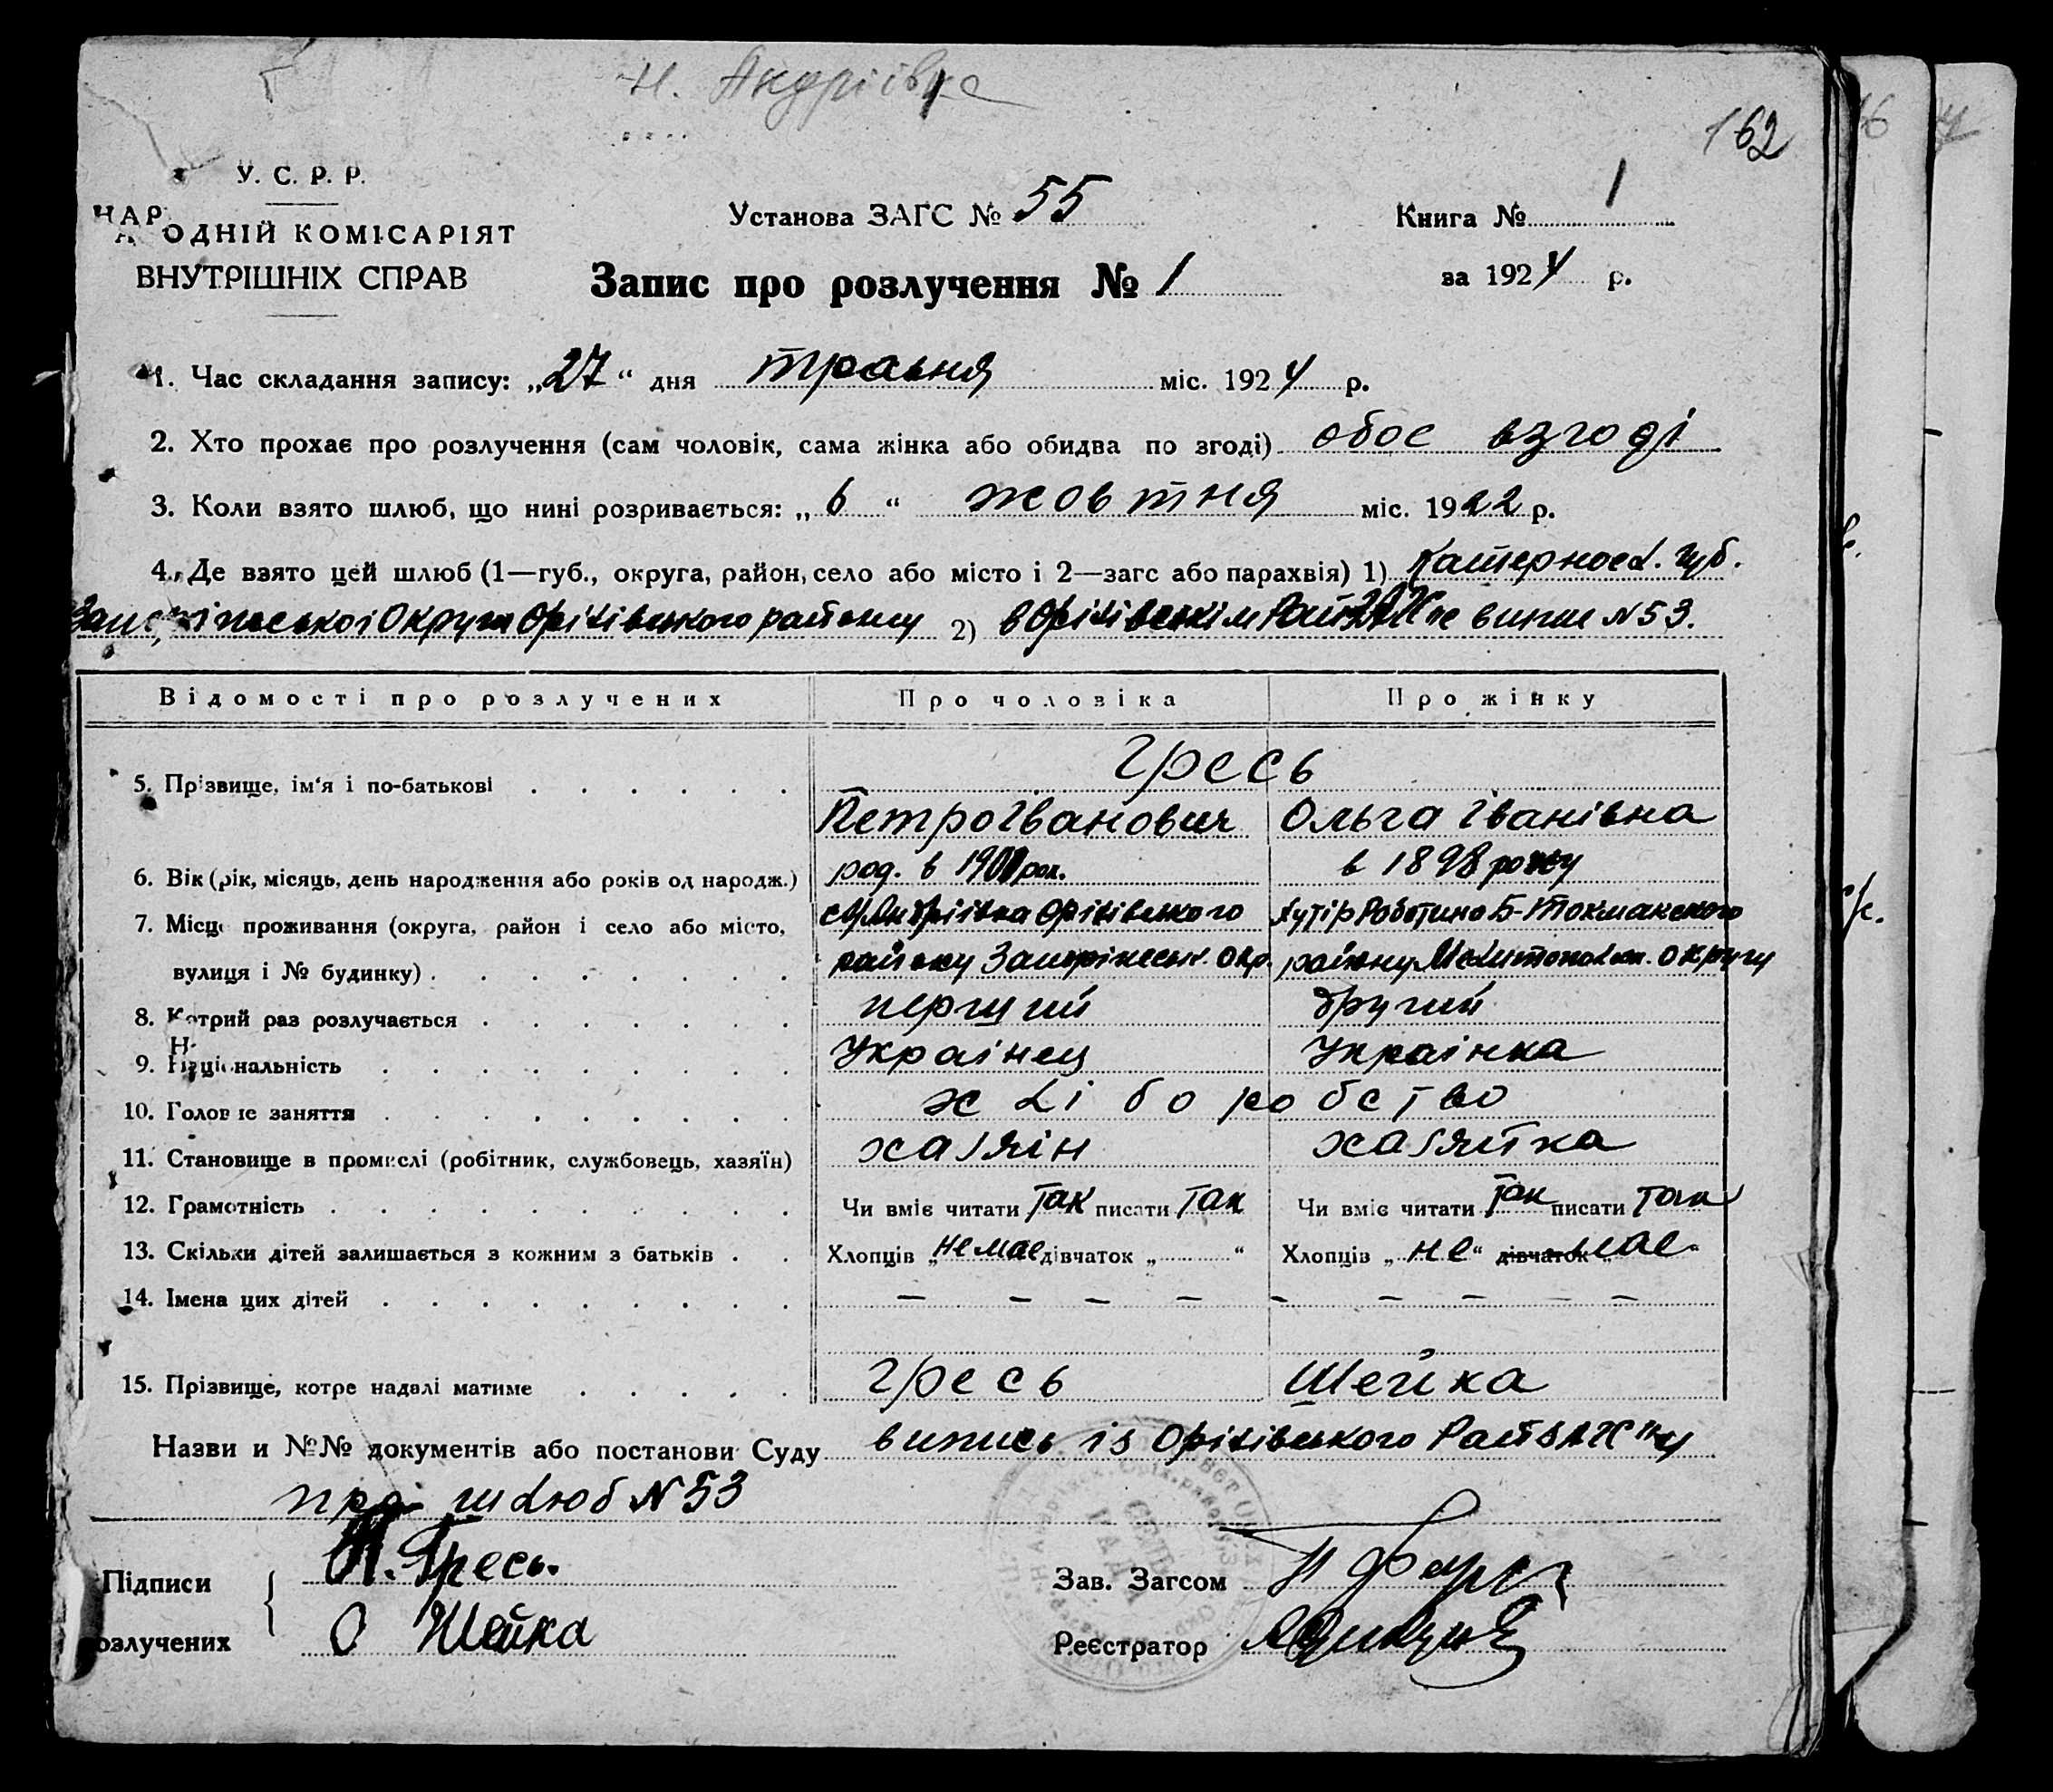 Н. Андріівка
162
У. С. Р. Р.
НАРОДНІЙ КОМІСАРІЯТ
ВНУТРІШНІХ СПРАВ
Установа ЗАГС № 55
Книга № 1
Запис про розлучення № 1
за 1924 р.
1. Час складання запису: „27“ дня травня міс. 1924 р.
2. Хто прохає про розлучення (сам чоловік, сама жінка або обидва по згоді) обое взгоді
3. Коли взято шлюб, що нині розривається: „6“ жовтня міс. 1922 р.
4. Де взято цей шлюб (1—губ., округа, район, село або місто і 2—загс або парахвія) 1) Катериносл. губ.
Запоріжськоі Округи Оріхівського району 2) в Оріхівскім РайЗАГСе випис №53.
Відомості про розлучених Про чоловіка Про жінку
5. Прізвище, ім‘я і по-батькові Гресь
Петро Іванович Ольга Іванівна
6. Вік (рік, місяць, день народження або років од народж.) род. в 1900 рок. в 1898 року
7. Місце проживання (округа, район і село або місто, с Н Андріівка Оріхівського Хутір Роботино Б-Токмакского
вулиця і № будинку) району Запоріжськ. Окр. району Мелитопольск. округу
8. Котрий раз розлучається перший другий
9. Національність Украінец Украінка
10. Головне заняття хліборобство
11. Становище в промислі (робітник, службовець, хазяїн) хазяін хазяйка
12. Грамотність Чи вміє читати так писати так Чи вміє читати так писати так
13. Скільки дітей залишається з кожним з батьків Хлопців „немае дівчаток „ “ Хлопців „не“ дівчаток „мае“
14. Імена цих дітей — — — — — — — —
15. Прізвище, котре надалі матиме Гресь Шейка
Назви и №№ документів або постанови Суду випись із Оріхівського РайЗАГСу
про шлюб №53
Підписи П. Гресь. Зав. Загсом
озлучених О Шейка Реєстратор